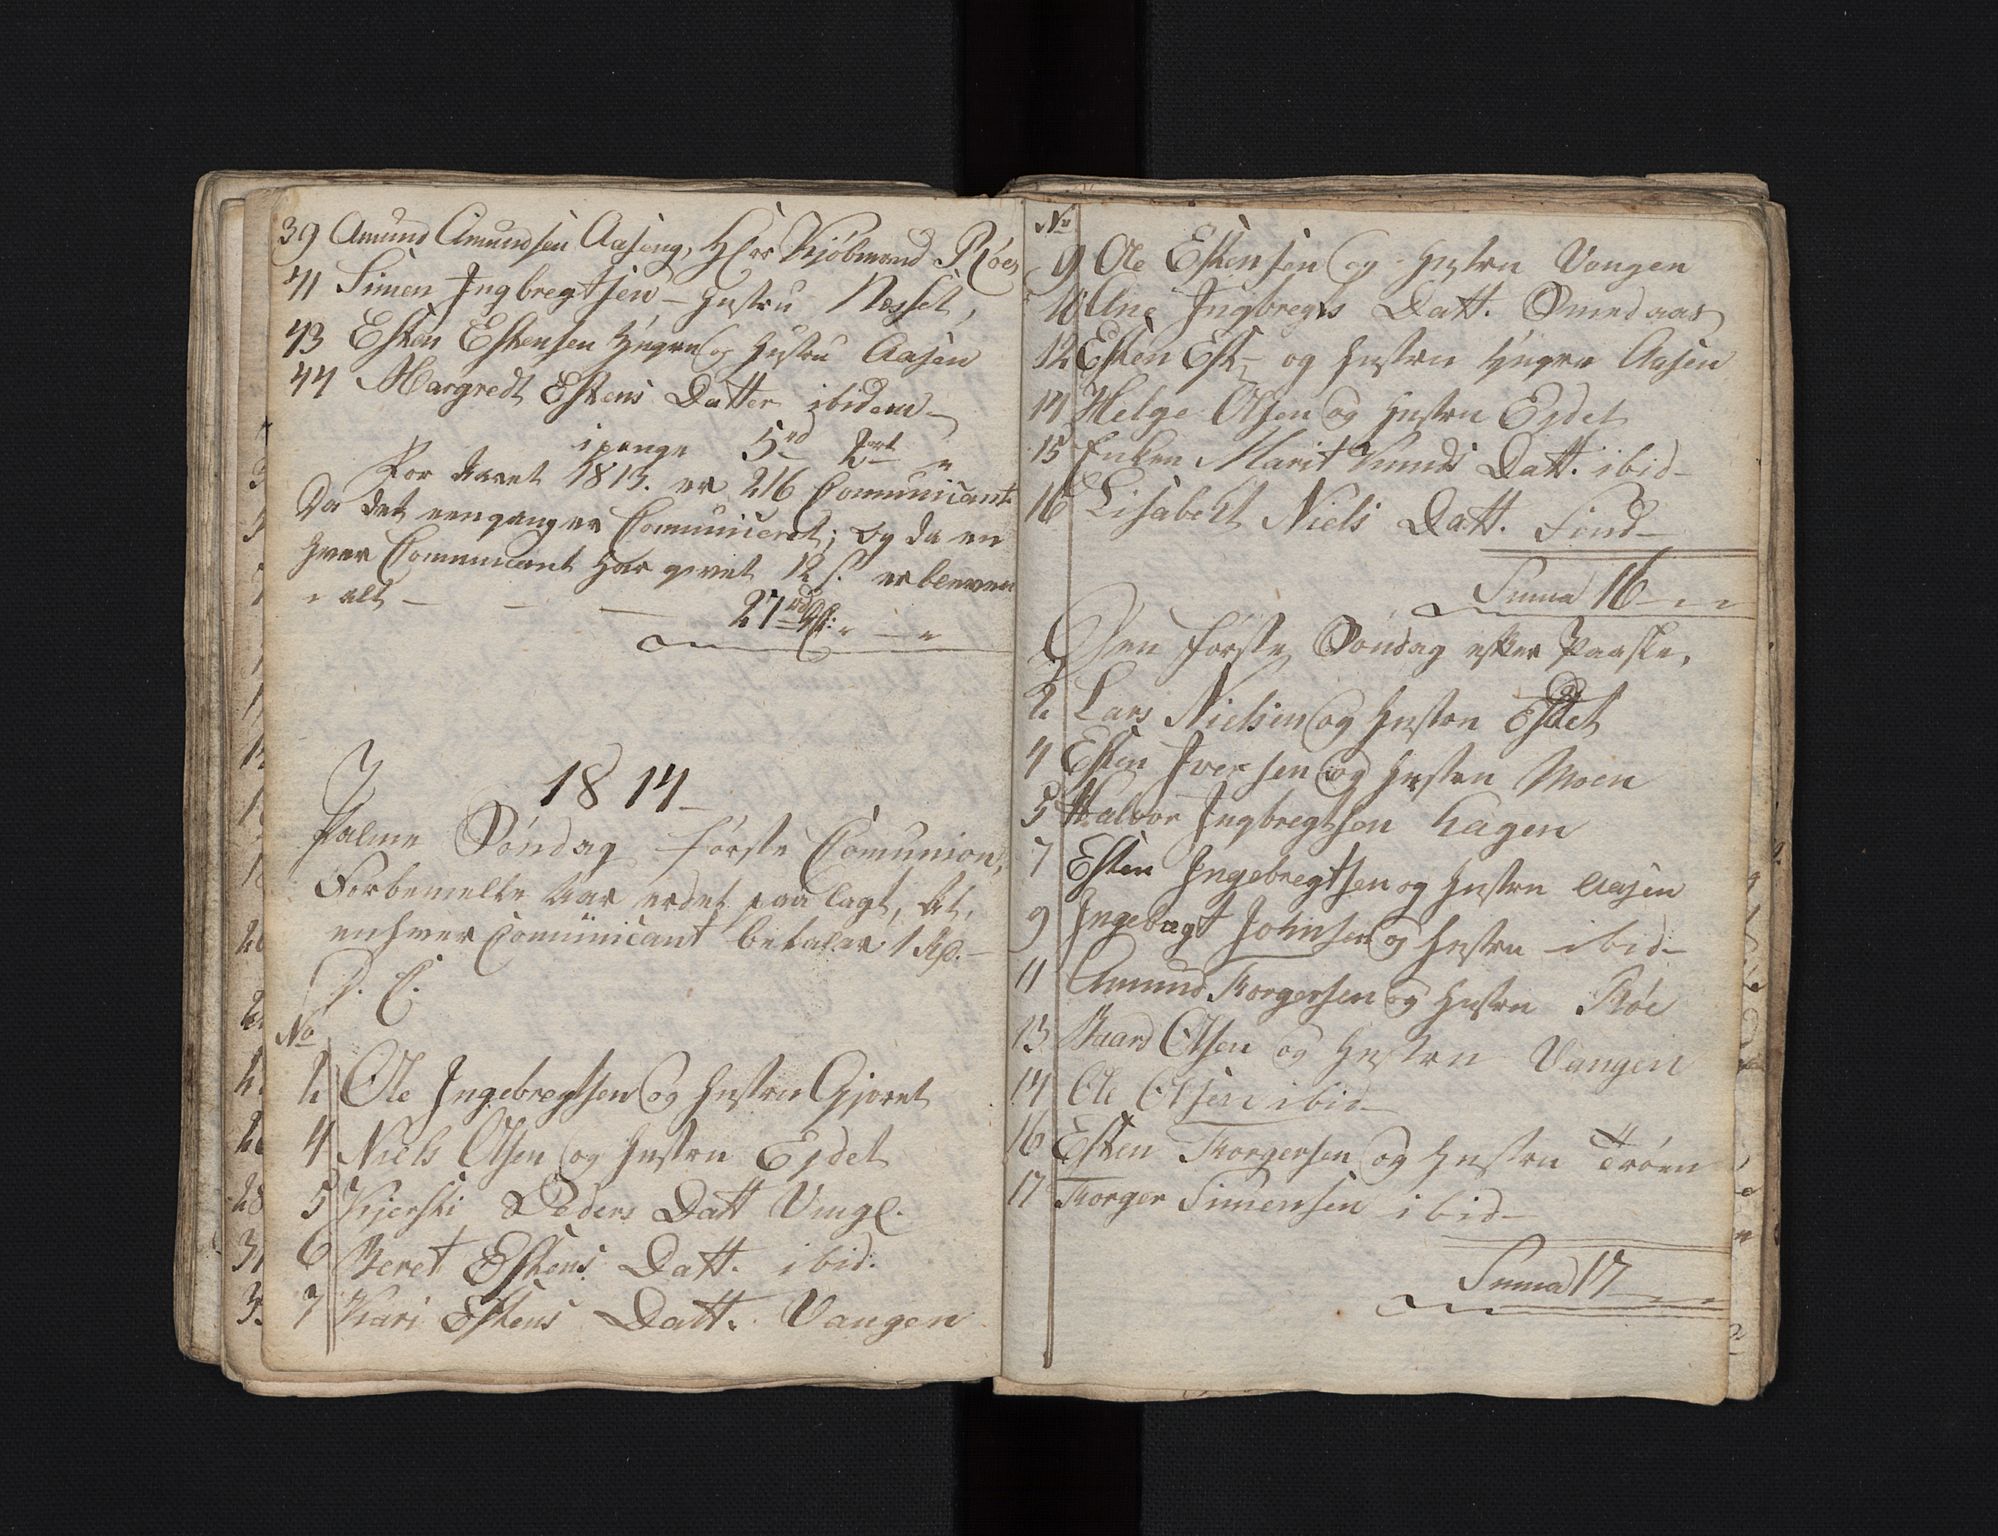 39 Amund Amundsen Aaseng, Hos Kjøbmand Røe,
41 Simen Ingbregtsen, - Hustru Næsset,
43 Esten Estensen Yngre og Hustru Aasen
44 Margredt Estens Datter ibidem -
ipenge 5rd 2rt "
For Aaret 1813. er 216 Comunicant
Da det eengang er Comuniceret; og da en
hver Communicant har givet 12 s. er bleven
i alt - - - 27rd " - "
1814
Palme Søndag første Comunion,
Forbemelte Aar er det paalagt, At,
enhver Comunicant betaler 1
No
2 Ole Ingebregtsen og Hustru Gjøret
4 Niels Olsen og Hustru Ejdet
5 Kjersti Peders Datt Vingl.
6 Beret Estens Datt. ibid.
7 Kari Estens Datt. Vangen
No
9 Ole Estensen og Hustru Vangen
10 Ane Ingbregts Datt. Smedaas
12 Esten Est- og Hustru Yngre Aasen
14 Helge Olsen og Hustru Ejdet
15 Enken Marit Knuds Datt. ibid-
16 Lisabeht Niels Datt. Sind-
Suma 16 - " "
Den første Søndag efter Paaske.
2 Lars Nielsen og Hustru Eidet
4 Esten Iversen og Hustru Moen
5 Halvor Ingbregtsen Hagen
7 Esten Ingebregtsen og Hustru Aasen
9 Ingebregt Johnsen og Hustru ibid-
11 Amund Torgersen og Hustru Røe
13 Baard Olsen og Hustru Vangen
14 Ole Olsen ibid-
16 Esten Torgersen og Hustru Trøen
17 Torger Simensen ibid-
Suma 17 - " "